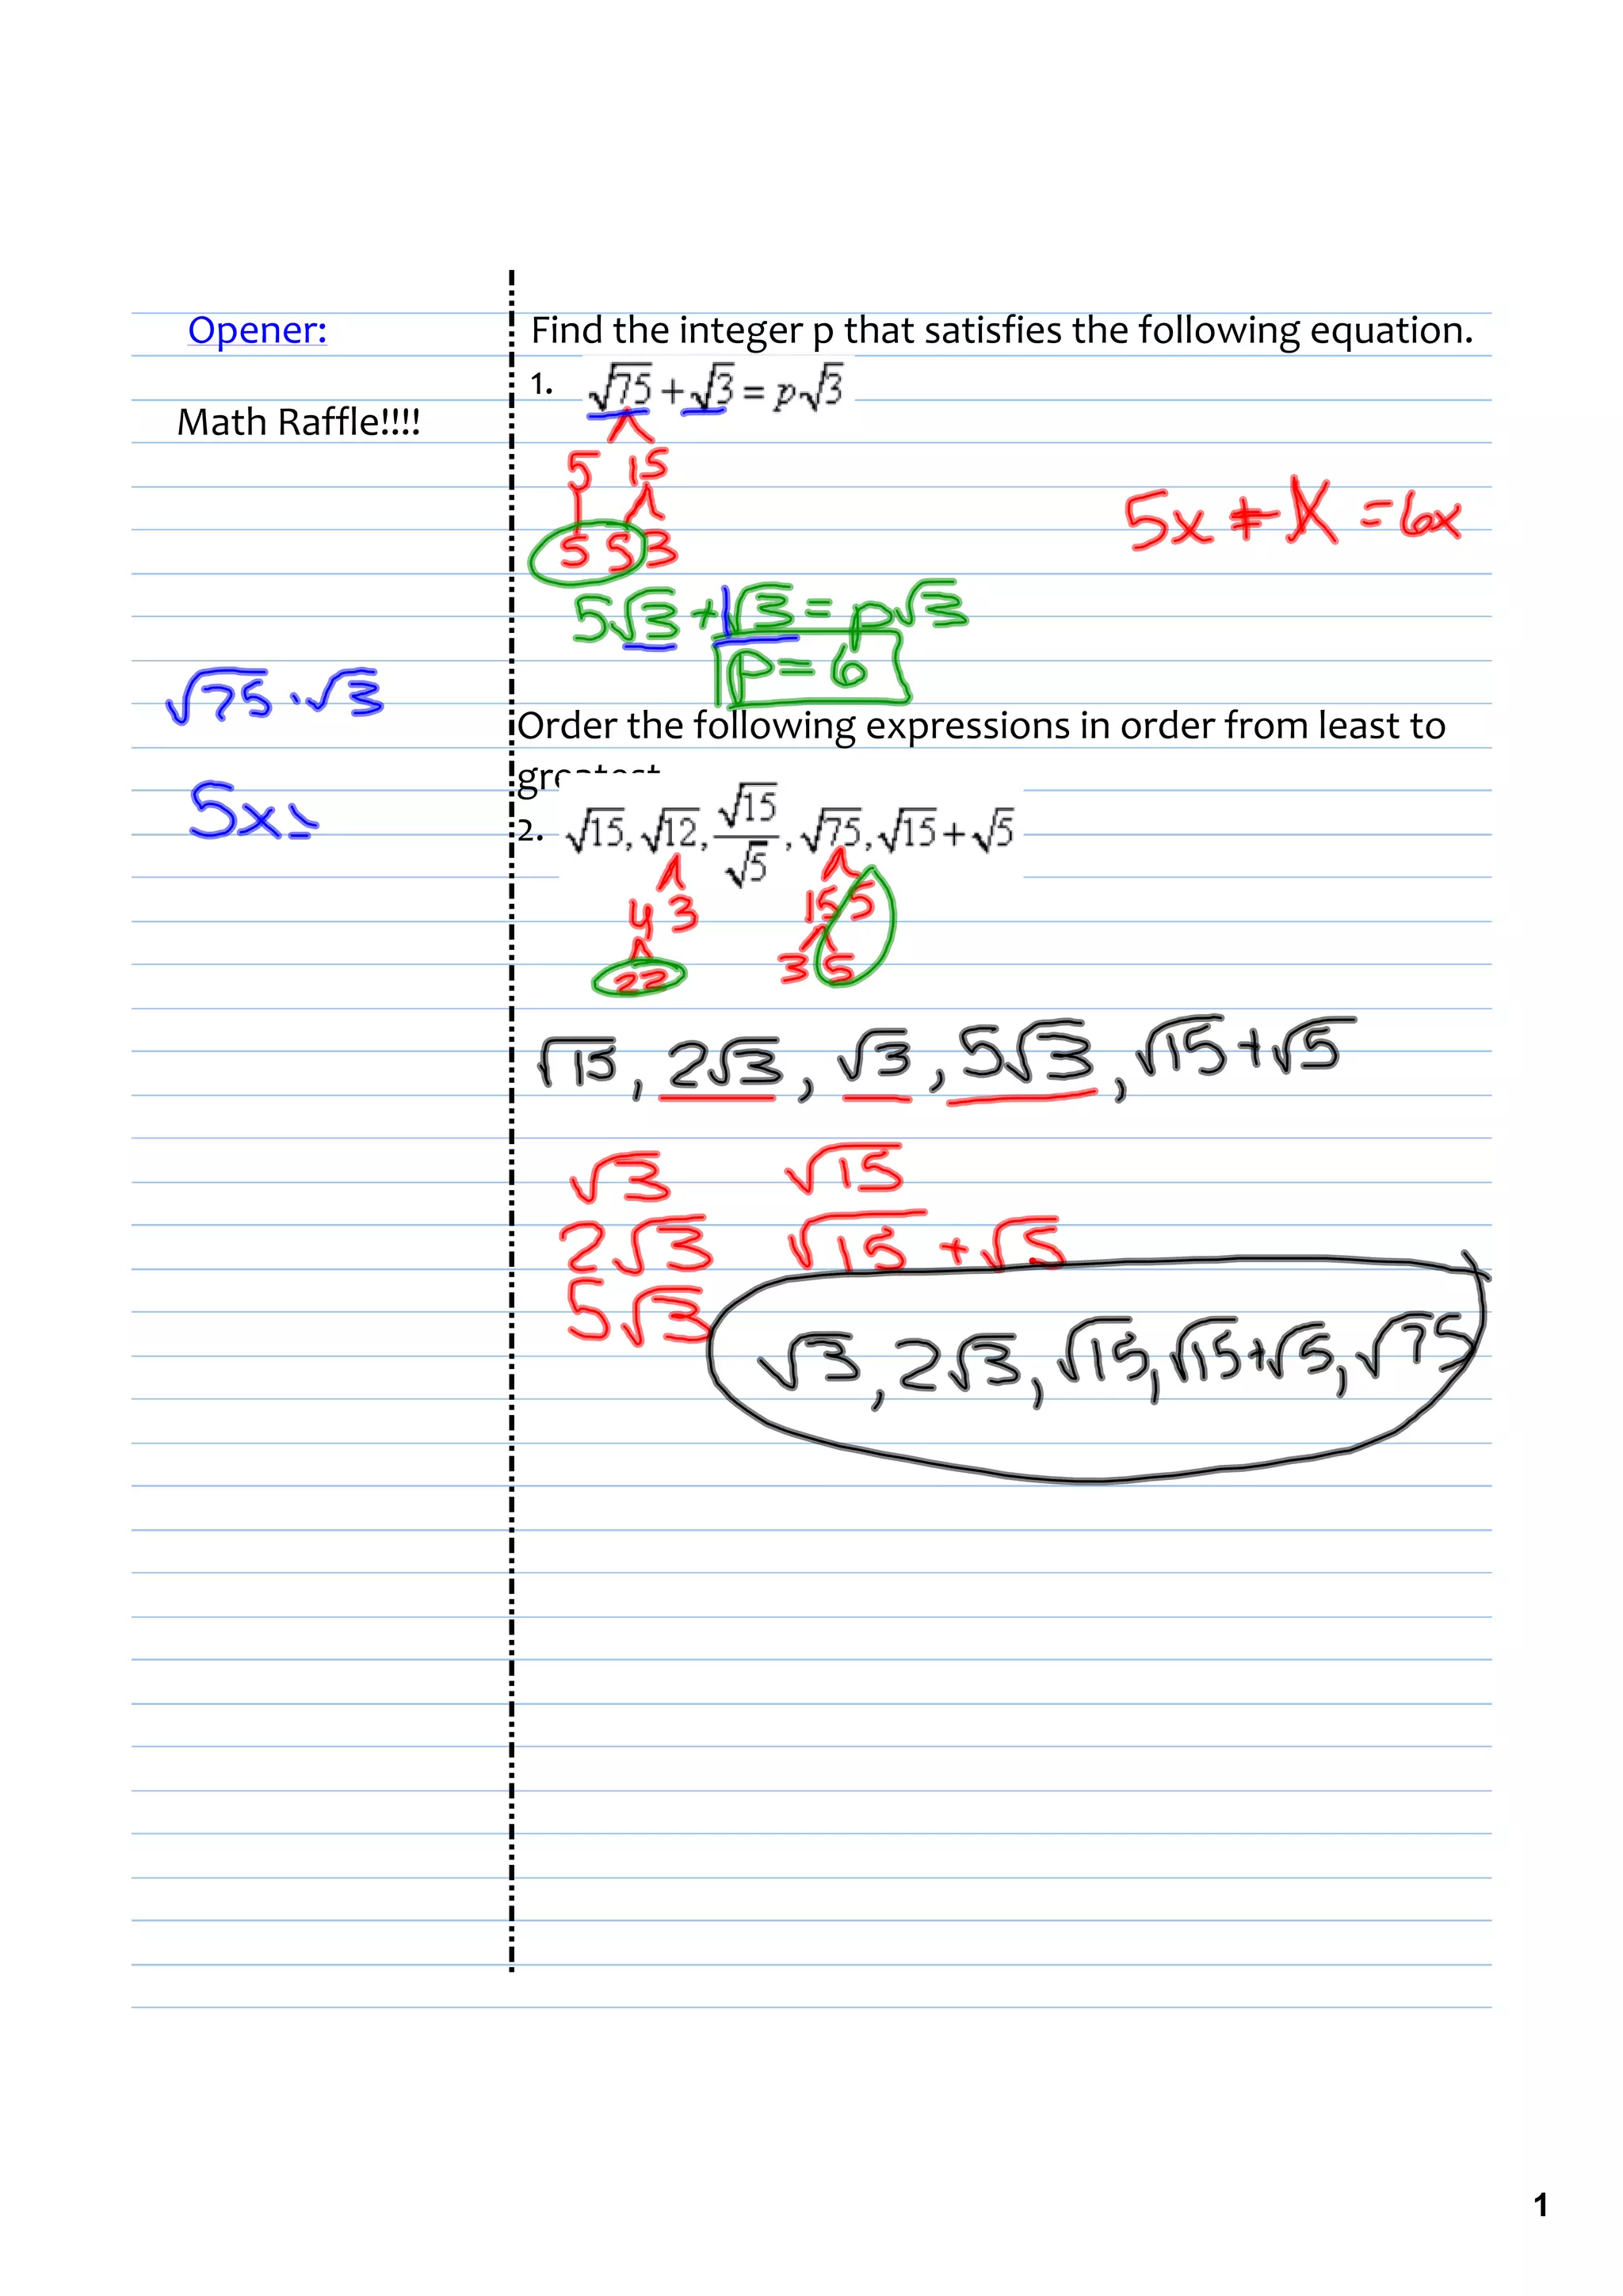 Opener:
Math Raffle!!!!
√75 · √3
5x
Find the integer p that satisfies the following equation.
1. √75 + √3 = p√3
5 15
5 5 3
5x + x = 6x
5√3 + 1√3 = p√3
p = 6
Order the following expressions in order from least to
greatest
2. √15, √12, √15/√5, √75, √15 + √5
4 3 15 5
2 2 3 5
√15, 2√3, √3, 5√3, √15 + √5
√3 √15
2√3 √15 + √5
5√3
√3, 2√3, √15, √15 + √5, √75
1